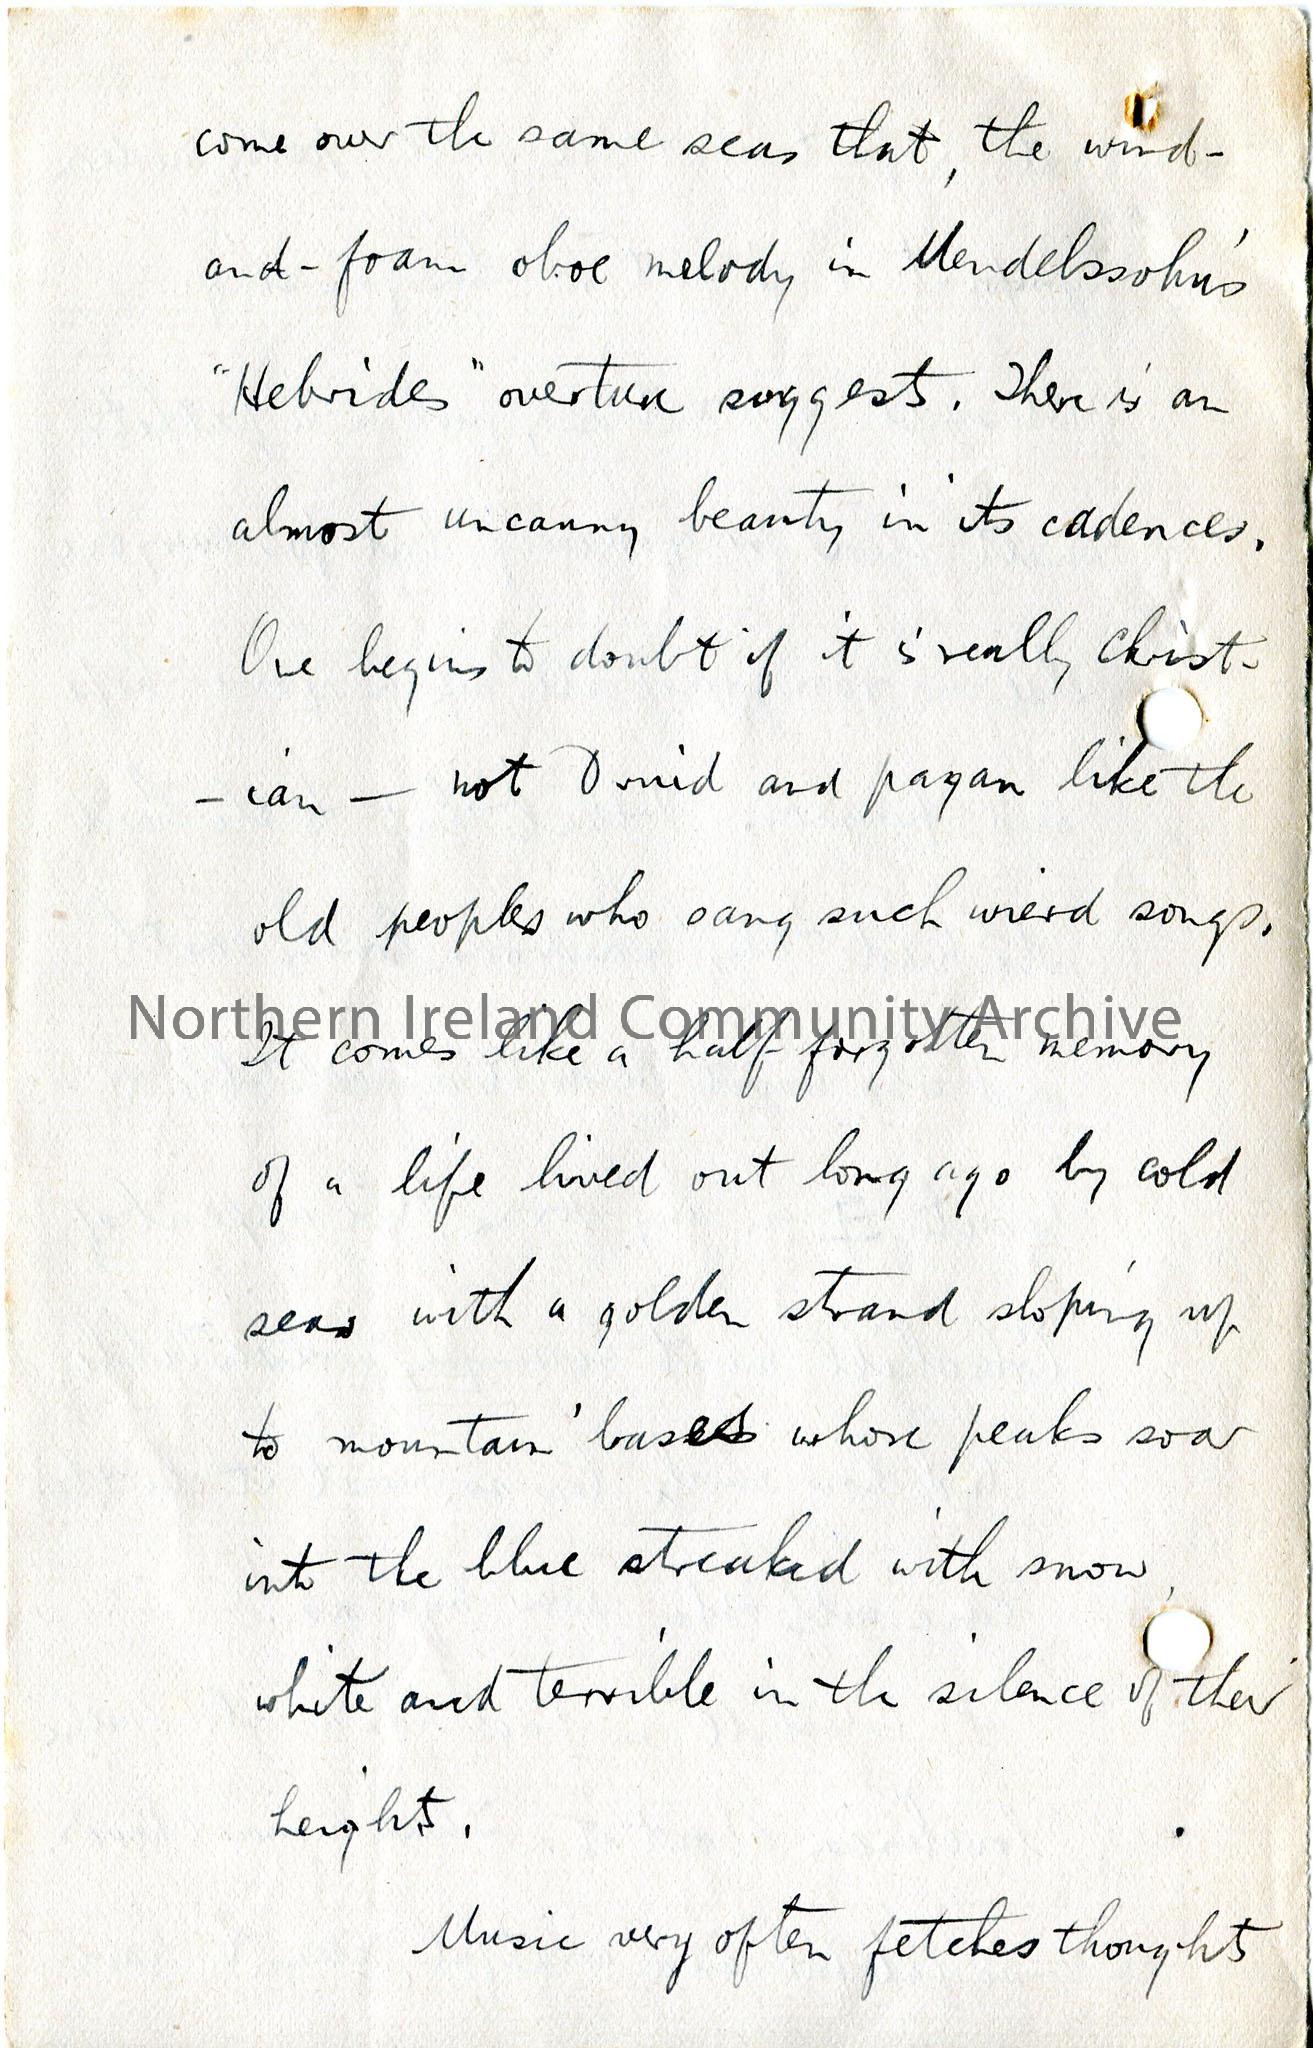 come over the same seas that, the wind-
and-foam oboe melody in Mendelssohn's
"Hebrides" overture suggests. There is an
almost uncanny beauty in its cadences.
One begins to doubt if it is really Christ-
-ian — not Druid and pagan like the
old peoples who sang such wierd songs.
Northern Ireland Community Archive
It comes like a half-forgotten memory
of a life lived out long ago by cold
seas with a golden strand sloping up
to mountain bases whose peaks soar
into the blue streaked with snow,
white and terrible in the silence of their
heights.
Music very often fetches thoughts